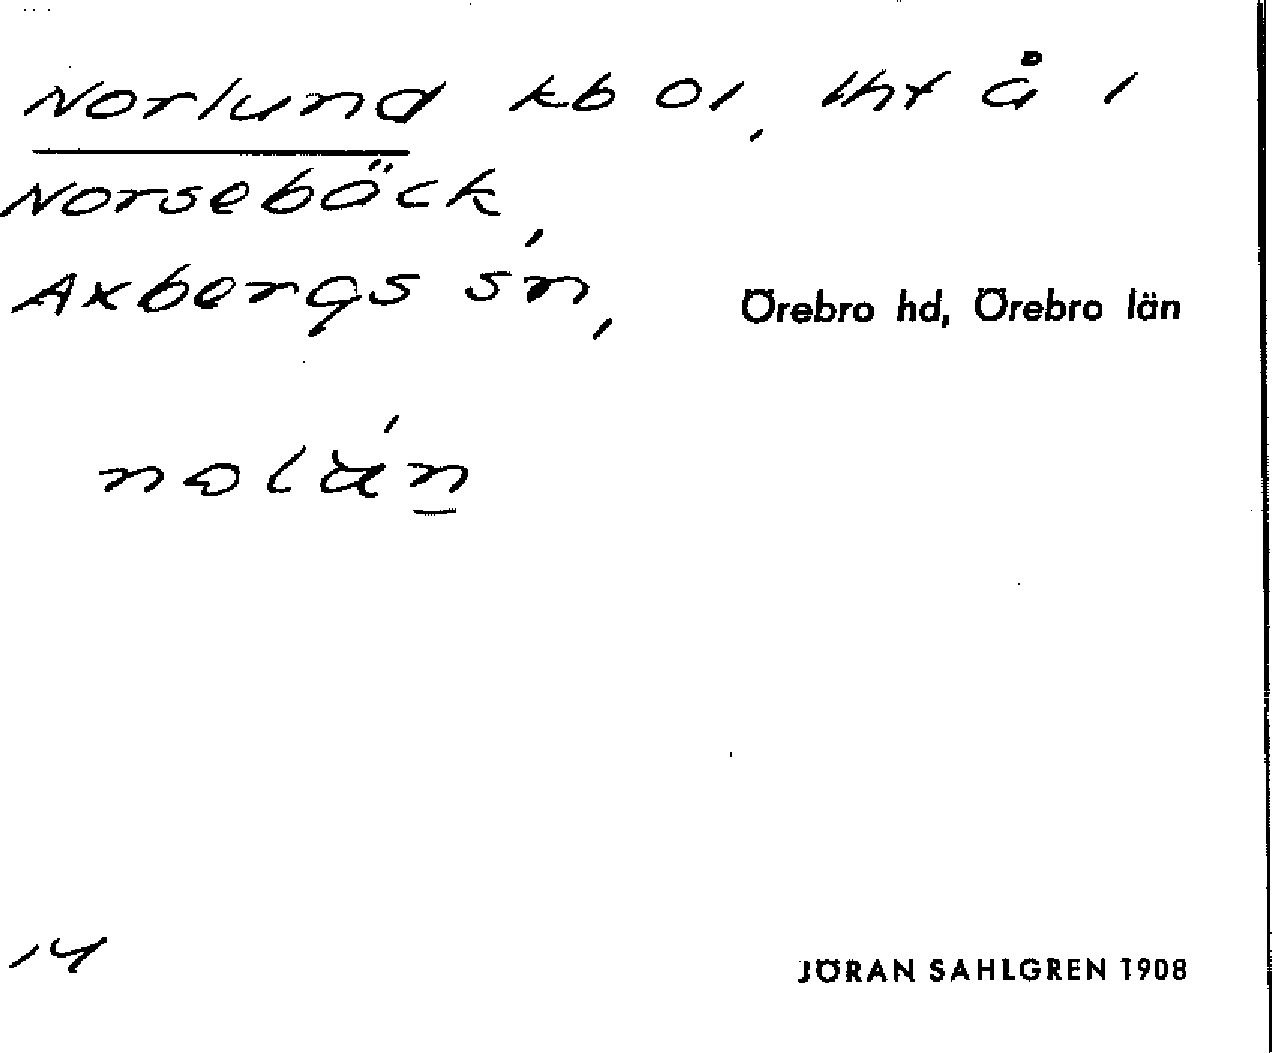 Norlund kb 01, lht å 1
Norseböck,
Axbergs sn, Örebro hd, Örebro län
nolán
14
JÖRAN SAHLGREN 1908